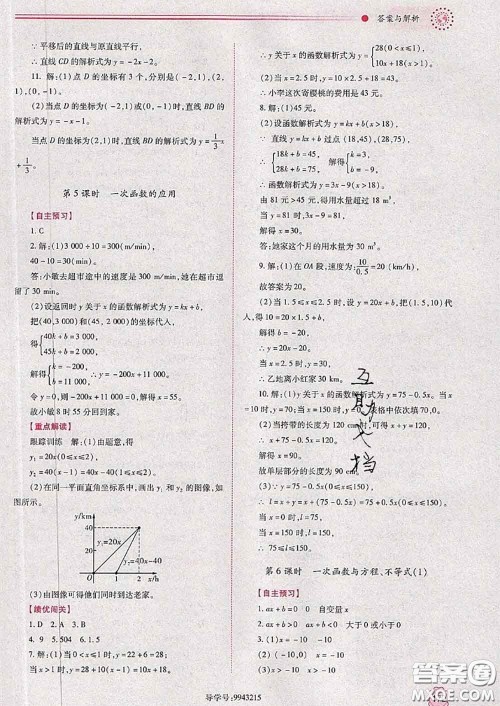 答案与解析
∵ 平移后的直线与原直线平行,
∴ 直线 CD 的解析式为 y=-2x-2.
11. 解:(1)点 D 的坐标有 3 个,分别是(-2,1),(2,1),(0,-1).
(2)当点 D 的坐标为(-2,1)或(0,-1)时,直线 BD 的解析式为 y=-x-1.
当点 D 的坐标为(2,1)时,直线 BD 的解析式为 y=1/3x+1/3.
第 5 课时 一次函数的应用
【自主预习】
1. C
2. 解:(1)3 000÷10=300(m/min),
40-10=30(min).
答:小敏去超市途中的速度是 300 m/min,她在超市逗留了 30 min.
(2)设返回时 y 关于 x 的函数解析式为 y=kx+b,
把(40,3 000)和(45,2 000)的坐标代入,
得{40k+b=3 000,
45k+b=2 000,
解得{k=-200,
b=11 000,
∴ y=-200x+11 000.
令 y=0,则-200x+11 000=0,解得 x=55.
故小敏 8 时 55 分回到家.
【重点解读】
跟踪训练 解:(1)由题意,得
y₁=20x(0≤x≤2),
y₂=40(x-1)(1≤x≤2).
(2)在同一平面直角坐标系中,画出 y₁ 和 y₂ 的图像,如图所示.
y/km
40
30
20
10
y₁=20x
y₂=40x-40
0 1 2 x/h
(3)由图像可得他们同时到达老家.
【绩优闯关】
1. D 2. A 3. B
4. 9 5. 504 6. 1
7. 解:(1)当 x=4 时,y=22+6=28;
当 x>1 时,y=22+6+10(x-1)=10x+18;
∴ y 关于 x 的函数解析式为 y={28(0<x≤1),
10x+18(x>1).
(2)当 x=2.5 时,y=10×2.5+18=43.
∴ 小李这次寄樱桃的费用是 43 元.
8. 解:(1)45元.
(2)设函数解析式为 y=kx+b(x>18).
∵ 直线 y=kx+b 过点(18,45),(28,75),
∴ {18k+b=45,
28k+b=75, 解得{k=3,
b=-9,
∴ 函数解析式为 y=3x-9(x>18).
由 81 元>45 元,得用水量超过 18 m³,
∴ 当 y=81 时,3x-9=81,
解得 x=30.
答:她家这个月的用水量为 30 m³.
9. 解:(1)在 OA 段,速度=10/0.5=20(km/h),
故答案为 20.
(2)当 1.5≤x≤2.5 时,设 y=20x+b,把(1.5,10)代入,得 10=20×1.5+b,
解得 b=-20,
∴ y=20x-20,
当 x=2.5 时,解得 y=30,
∴ 乙地离小红家 30 km.
10. 解:(1)y 关于 x 的函数解析式为 y=75-0.5x. 当 x=10 时,y=70;当 x=150 时,y=0. 故表格中依次填 70,0.
(2)当挎带的长度为 120 cm 时,
∴ x+75-0.5x=120,
解得 x=90.
故单层部分的长度为 90 cm.
(3)∵ y=75-0.5x(0≤x≤150),
∴ l=x+y=x+75-0.5x=0.5x+75(0≤x≤150),
当 x=0 时,l=75,
当 x=150 时,l=150,
∴ 75≤l≤150.
第 6 课时 一次函数与方程、不等式(1)
【自主预习】
1. ax+b=0 自变量 x
2. ax+b>0 ax+b<0 大于 0 或小于 0
3. (1)x=-10 -10
(2)x>-10 x<-10
互助文档
导学号:9943215
答案圈
MXQE.COM